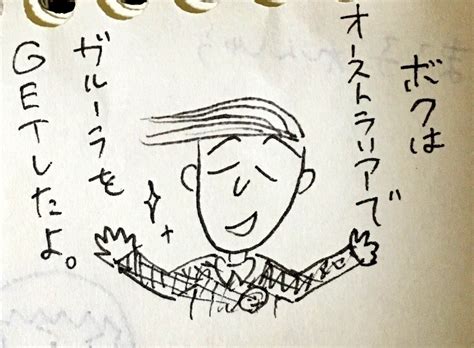 ボクは
オーストラリアで
ガルーラを
GETしたよ。